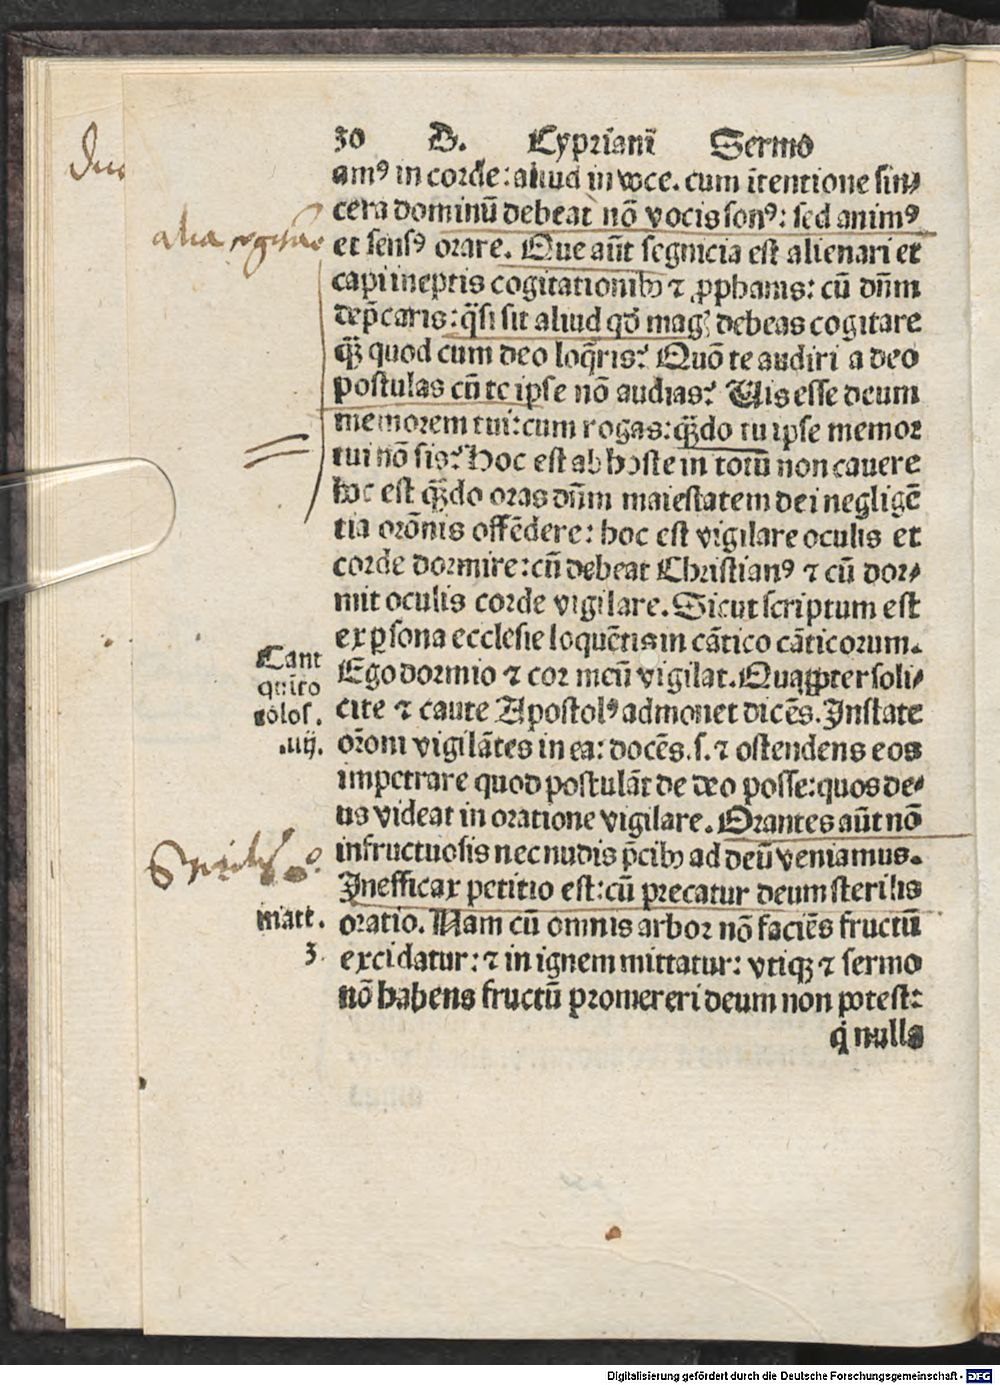 30 D. Cypriani Sermo
amꝰ in corde: aliud in voce. cum ītentione sin⸗
cera dominū debeat nō vocis sonꝰ: sed animꝰ
alia cogitare
et sensꝰ orare. Que aūt segnicia est alienari et
capi ineptis cogitationibꝫ ⁊ ꝓphanis: cū dn̄m
dep̄caris: q̄si sit aliud qđ magꝭ debeas cogitare
q̄ꝫ quod cum deo loq̄ris? Quō te audiri a deo
postulas cū te ipse nō audias? Uis esse deum
memorem tui: cum rogas: qn̄do tu ipse memor
tui nō sis? Hoc est ab hoste in totū non cauere
hoc est qn̄do oras dn̄m maiestatem dei negligē
tia orōnis offēdere: hoc est vigilare oculis et
corde dormire: cū debeat Christianꝰ ⁊ cū dor⸗
mit oculis corde vigilare. Sicut scriptum est
ex ꝑsona ecclesie loquētis in cātico cāticorum.
Cant
quīto
colos.
.iiij.
Ego dormio ⁊ cor meū vigilat. Quaꝓpter soli⸗
cite ⁊ caute Apostolꝰ admonet dicēs. Instate
orōni vigilātes in ea: docēs .s. ⁊ ostendens eos
impetrare quod postulāt de deo posse: quos de⸗
us videat in oratione vigilare. Orantes aūt nō
infructuosis nec nudis p̄cibꝫ ad deū veniamus.
Inefficax petitio est: cū precatur deum sterilis
matt.
3.
oratio. Nam cū omnis arbor nō faciēs fructū
excidatur: ⁊ in ignem mittatur: vtiqꝫ ⁊ sermo
nō habens fructū promereri deum non potest:
q̇ nulla
Digitalisierung gefördert durch die Deutsche Forschungsgemeinschaft - DFG